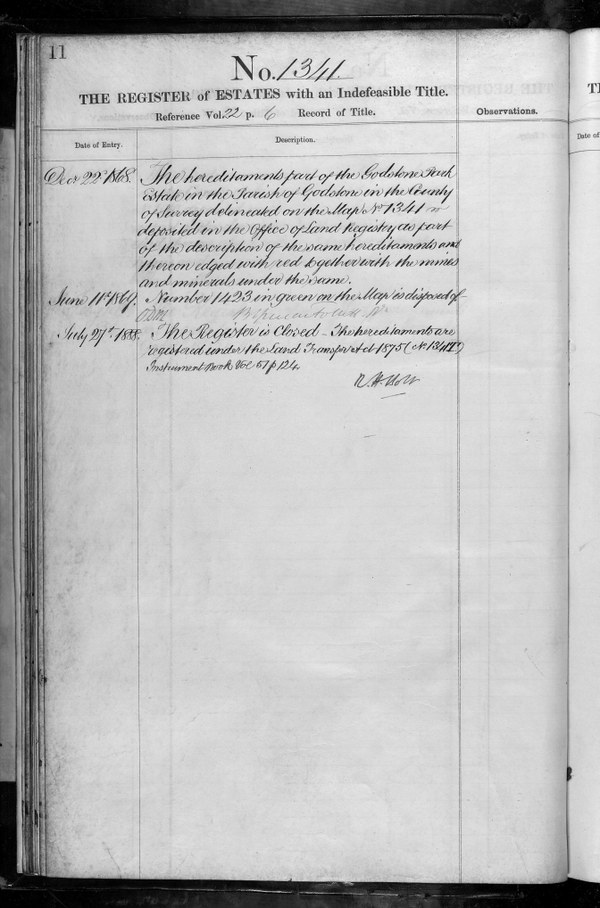 11
No. 1341.
THE REGISTER of ESTATES with an Indefeasible Title.
Reference Vol. 22 p. 6 Record of Title.
Observations.
Date of Entry.
Description.
Decr 22d 1868. The hereditaments part of the Godstone Park
Estate in the Parish of Godstone in the County
of Surrey delineated on the Map No 1341
deposited in the Office of Land Registry as part
of the description of the same hereditaments and
thereon edged with red together with the mines
and minerals under the same.
June 11th 1869. Number 1423 in green on the Map is disposed of
July 27th 1888. The Register is Closed – The hereditaments are
registered under the Land Transfer Act 1875 (No 1341
Instrument Book Vol 67 p 124
R. H. Holt
TH
Date of